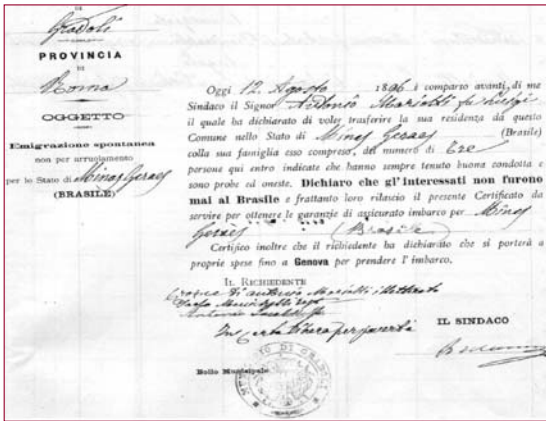 DI
Gradoli
PROVINCIA
DI
Roma
OGGETTO
Emigrazione spontanea
non per arruolamento
per lo Stato di Minas Geraes
(BRASILE)
Oggi 12 Agosto 1896 è comparso avanti, di me
Sindaco il Signor Antonio Mariotti fu Luigi
il quale ha dichiarato di voler trasferire la sua residenza da questo
Comune nello Stato di Minas Geraes (Brasile)
colla sua famiglia esso compreso, del numero di Tre
persone qui entro indicate che hanno sempre tenuto buona condotta e
sono probe ed oneste. Dichiaro che gl'Interessati non furono
mai al Brasile e frattanto loro rilascio il presente Certificato da
servire per ottenere le garanzie di assicurato imbarco per Minas
Geraes (Brasile)
Certifico inoltre che il richiedente ha dichiarato che si porterà a
proprie spese fino a Genova per prendere l'imbarco.
IL RICHIEDENTE
Croce di Antonio Mariotti illetterato
Antonio
In carta libera per povertà
IL SINDACO
Bollo Municipale
MUNICIPIO DI GRADOLI